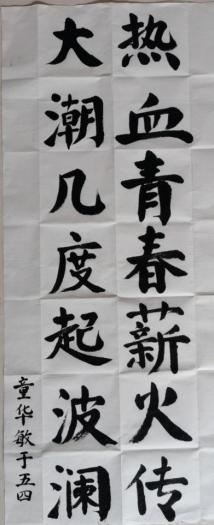 热血青春薪火传
大潮几度起波澜
童华敏于五四